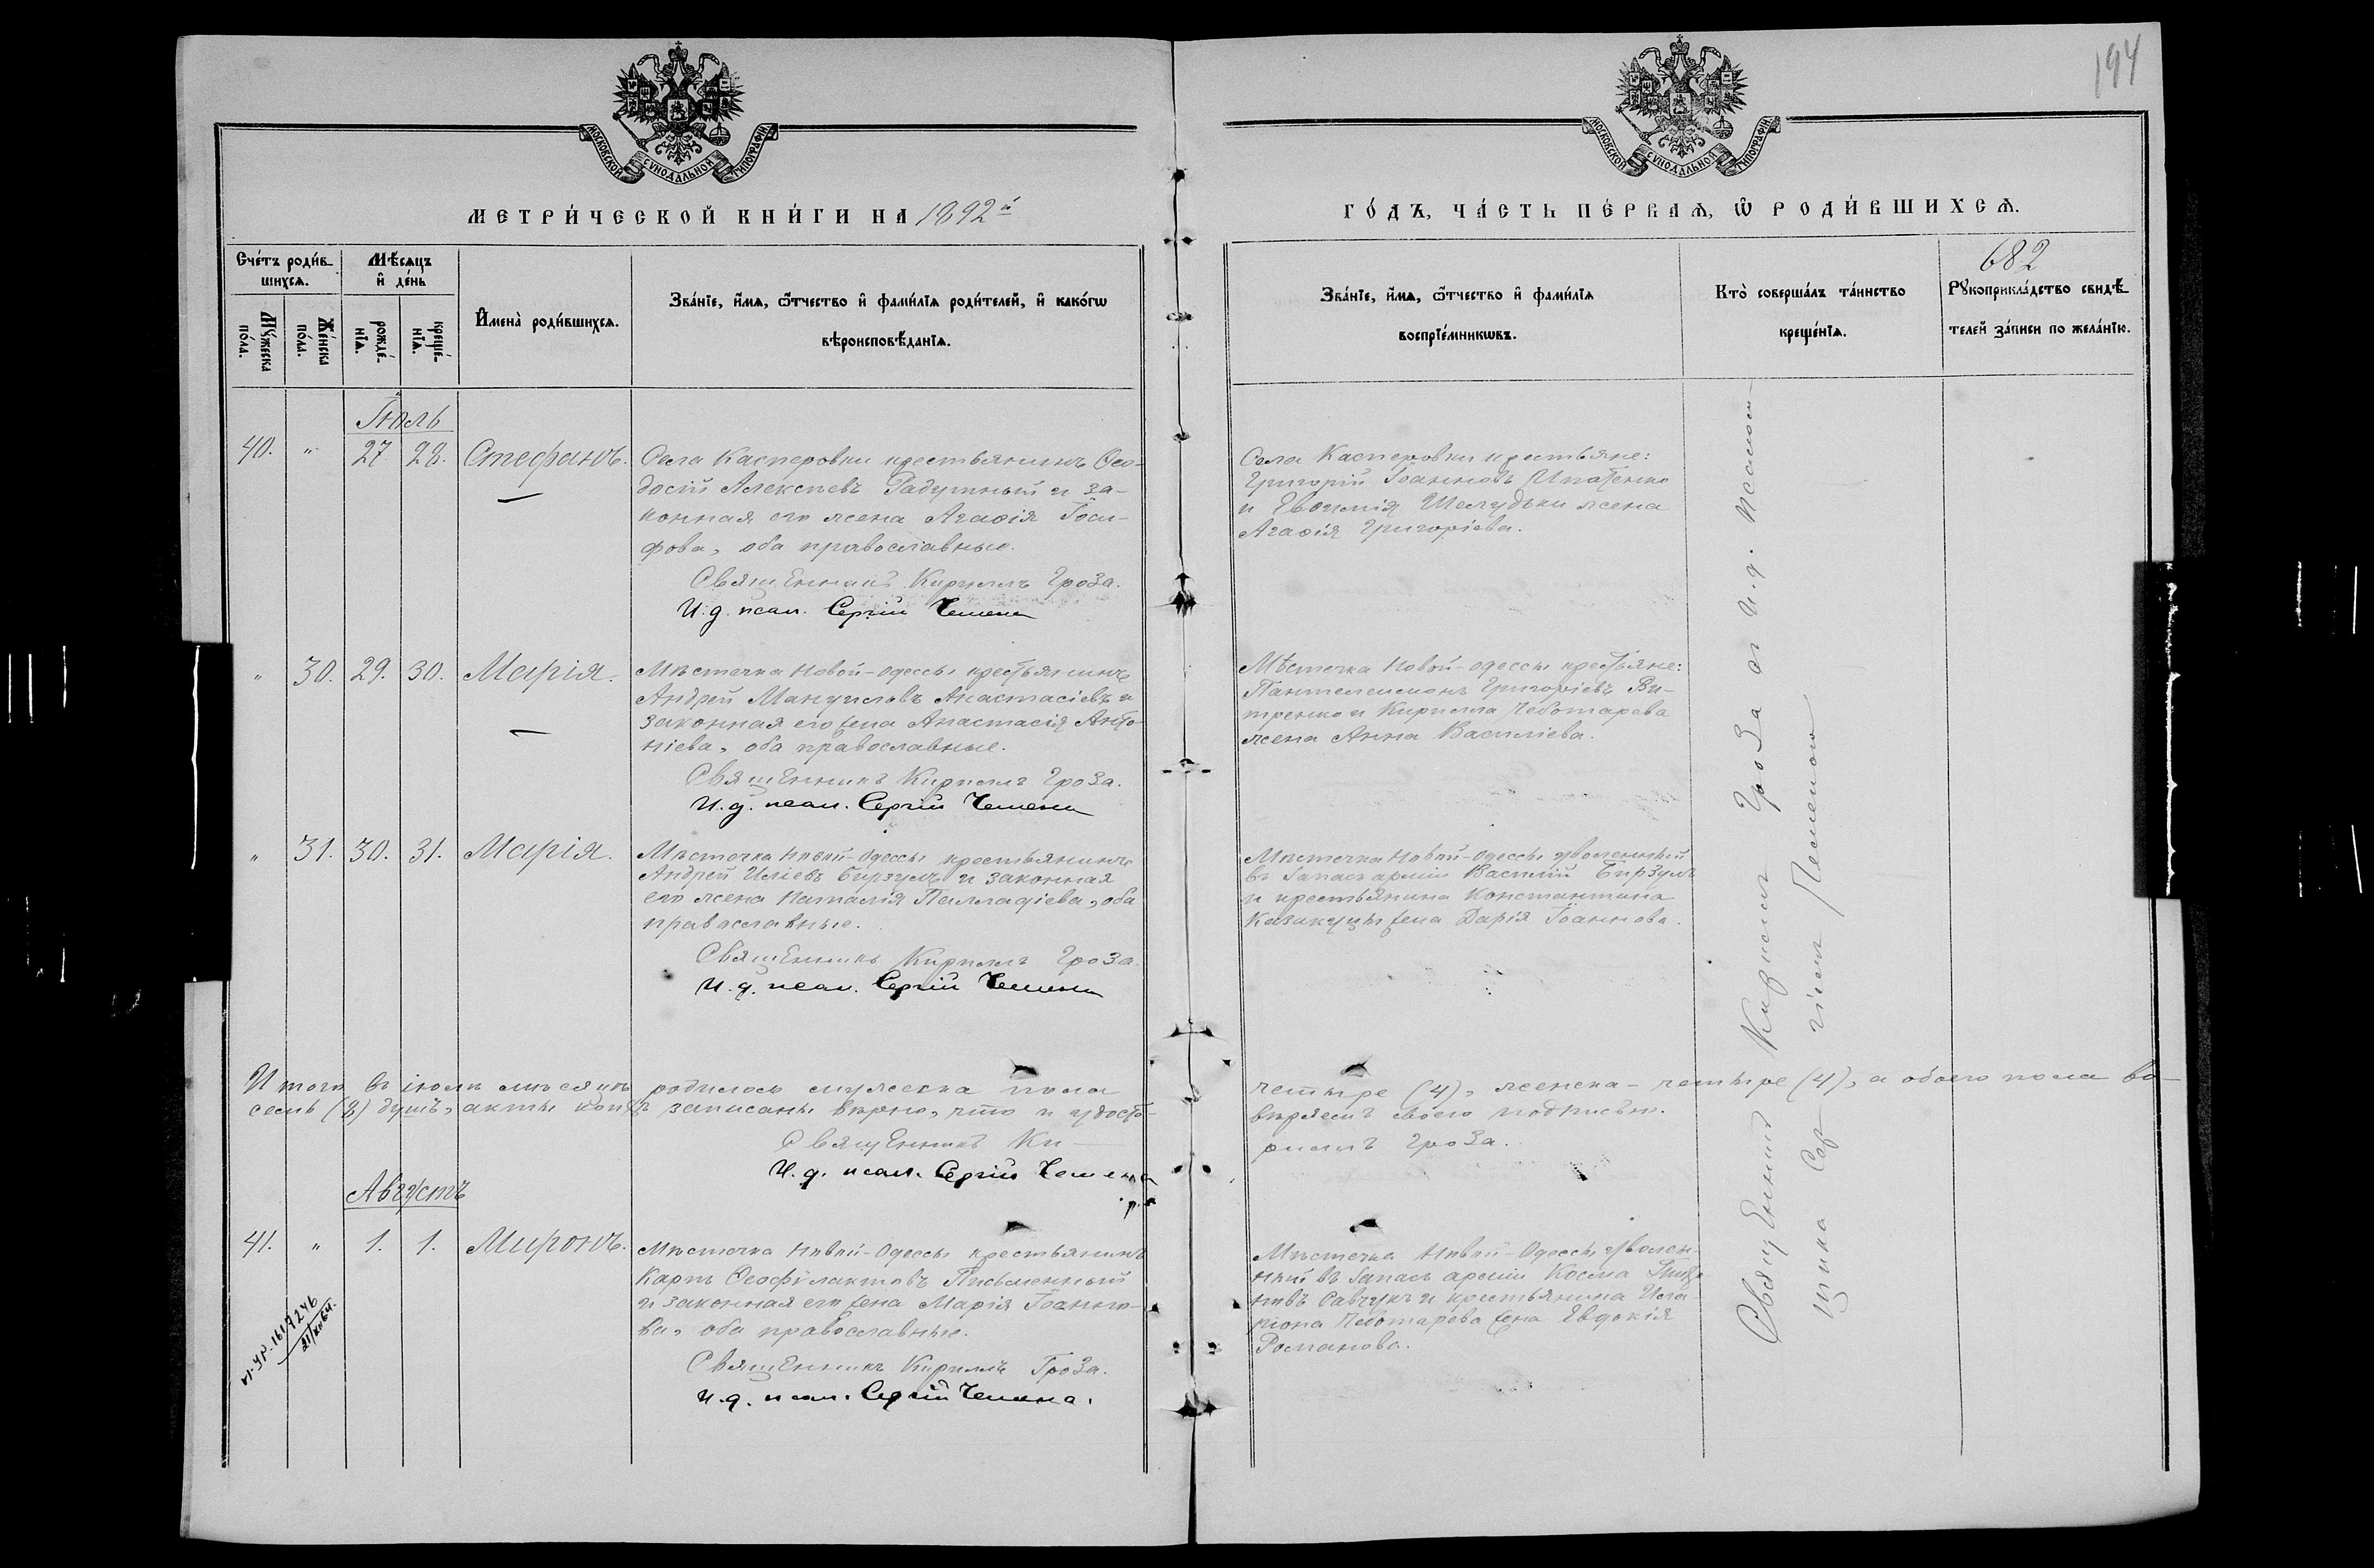 194
МОСКОВСКОЙ СѴНОДАЛЬНОЙ ТИПОГРАФІИ
МОСКОВСКОЙ СѴНОДАЛЬНОЙ ТИПОГРАФІИ
МЕТРИ́ЧЕСКОЙ КНИ́ГИ НА 1892й
ГО́ДЪ, ЧА́СТЬ ПЕ́РВАѦ, Ѡ҆ РОДИ́ВШИХСѦ.
Сче́тъ роди́в-
шихсѧ.
Мꙋ́жеска по́ла.
Же́нска по́ла.
Мѣ́сяцъ и҆ де́нь
рожде́-нїѧ.
креще́-нїѧ.
И҆мена̀ роди́вшихсѧ.
Зва́нїе, и҆́мѧ, ѻ҆́тчество и҆ фами́лїѧ роди́телей, и҆ како́гѡ
вѣроисповѣ́данїѧ.
Зва́нїе, и҆́мѧ, ѻ҆́тчество и҆ фами́лїѧ
воспрїе́мникѡвъ.
Кто̀ соверша́лъ та́инство
креще́нїѧ.
682
Рꙋкоприкла́дство свидѣ́-
телей за́писи по жела́нїю.
Іюль
40. " 27 28. Стефанъ.
Села Касперовки крестьянинъ Ѳео-
досій Алексѣевъ Гадупный и за-
конная его жена Агаѳія Іоси-
фова, оба православные.
Священникъ Кириллъ Гроза.
И. д. псал. Сергій Чемена
Села Касперовки крестьяне:
Григорій Іоанновъ Ипатенко
и Евѳимія Шелудьки жена
Агаѳія Григоріева.
" 30. 29. 30. Марія.
Мѣстечка Новой-Одессы крестьянинъ
Андрей Мануиловъ Анастасіевъ и
законная его жена Анастасія Анто-
ніева, оба православные.
Священникъ Кириллъ Гроза.
И. д. псал. Сергій Чемена
Мѣстечка Новой-Одессы крестьяне:
Пантелеимонъ Григоріевъ Ви-
тренко и Кирилла Чеботарева
жена Анна Василіева.
" 31. 30. 31. Марія.
Мѣстечка Новой-Одессы крестьянинъ
Андрей Иліевъ Бирзулъ и законная
его жена Наталія Палладіева, оба
православные.
Священникъ Кириллъ Гроза.
И. д. псал. Сергій Чемена
Мѣстечка Новой-Одессы уволенный
въ запасъ арміи Василій Бирзулъ
и крестьянина Константина
Казакуцы жена Дарія Іоаннова.
Итого въ іюлѣ мѣсяцѣ родилось мужеска пола четыре (4), женска - четыре (4), а обоего пола во-
семь (8) душъ, акты коихъ записаны вѣрно, что и удосто- вѣряемъ своею подписью.
Священникъ Ки- риллъ Гроза.
И. д. псал. Сергій Чемена
Августъ
41. " 1. 1. Миронъ.
Мѣстечка Новой-Одессы крестьянинъ
Карпъ Ѳеофилактовъ Письменный
и законная его жена Марія Іоанно-
ва, оба православные.
Священникъ Кириллъ Гроза.
И. д. псал. Сергій Чемена.
Мѣстечка Новой-Одессы уволен-
ный въ запасъ арміи Косма
новъ Савчукъ и крестьянина Ила-
ріона Чеботарева жена Евдокія
Романова.
Священникъ Кириллъ Гроза съ и. д. псалом-
щика Сергіемъ Чеменою